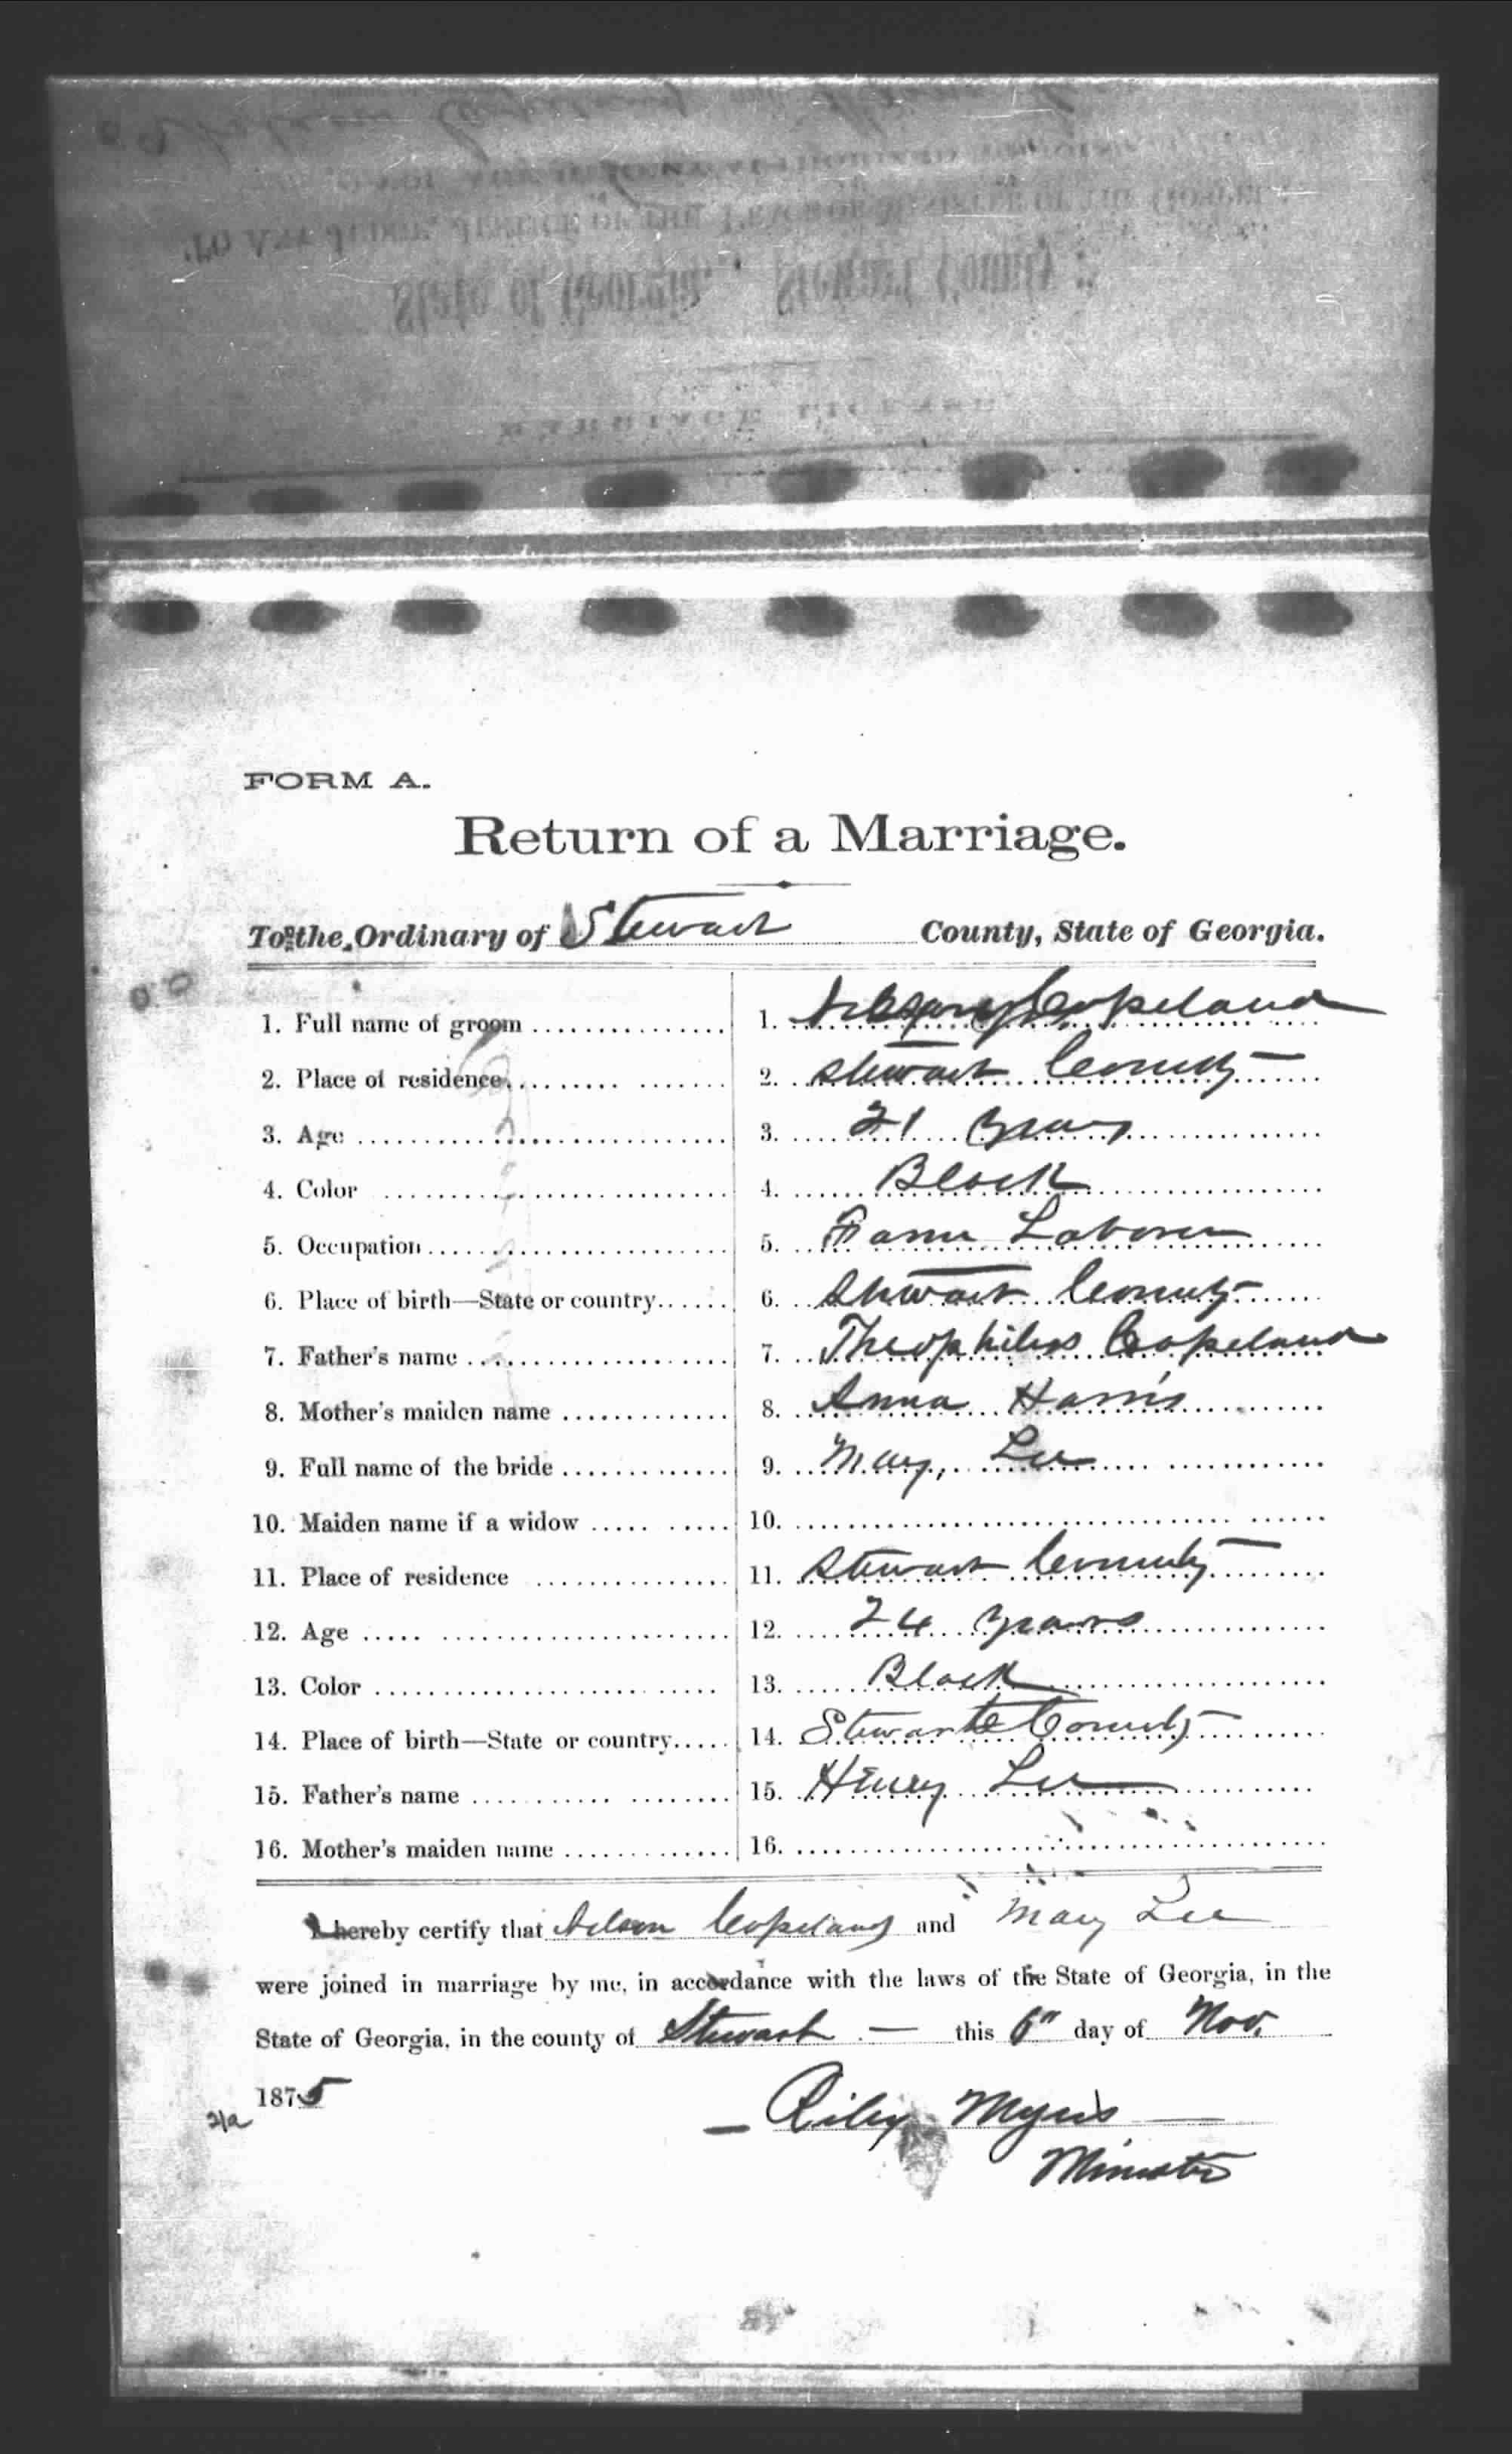 FORM A.
Return of a Marriage.
To the Ordinary of Stewart County, State of Georgia.
1. Full name of groom 1. Nelson Copeland
2. Place of residence 2. Stewart County
3. Age 3. 21 years
4. Color 4. Black
5. Occupation 5. Farm Laborer
6. Place of birth—State or country 6. Stewart County
7. Father's name 7. Theophilus Copeland
8. Mother's maiden name 8. Anna Harris
9. Full name of the bride 9. Mary, Lee
10. Maiden name if a widow 10.
11. Place of residence 11. Stewart County
12. Age 12. 24 years
13. Color 13. Black
14. Place of birth—State or country 14. Stewart County
15. Father's name 15. Henry Lee
16. Mother's maiden name 16.
I hereby certify that Nelson Copeland and Mary Lee
were joined in marriage by me, in accordance with the laws of the State of Georgia, in the
State of Georgia, in the county of Stewart — this 6" day of Nov.
1875
— Riley Myers —
Minister